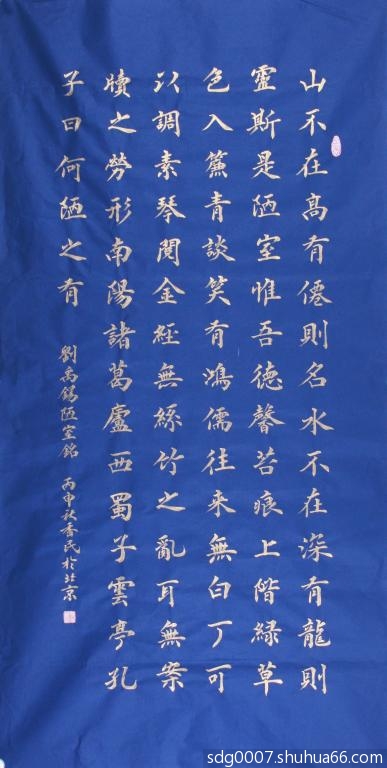 山不在髙有僊則名水不在深有龍則
靈斯是陋室惟吾德馨苔痕上階緑草
色入簾青談笑有鴻儒往来無白丁可
以調素琴閲金経無絲竹之亂耳無案
牘之勞形南陽諸葛廬西蜀子雲亭孔
子曰何陋之有
劉禹錫陋室銘 丙申秋香民於北京
sdg0007.shuhua66.com